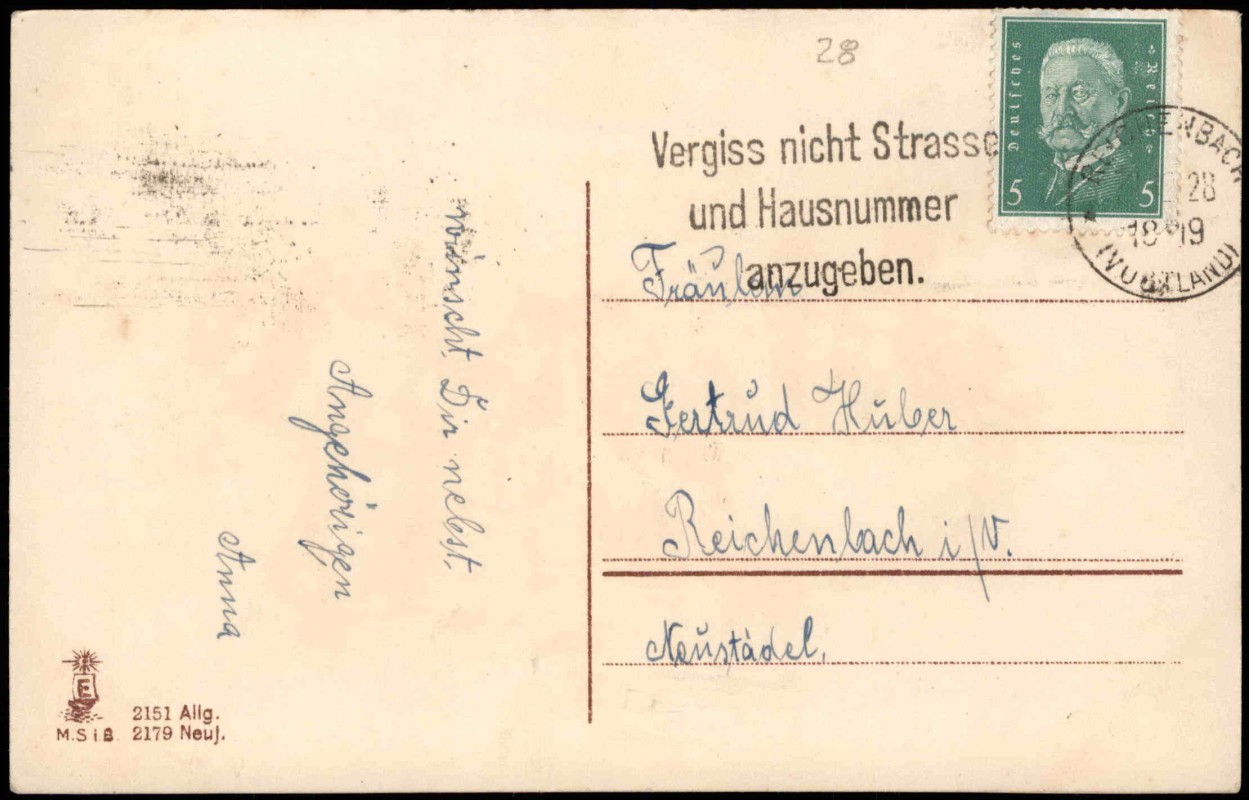 28
Deutsches Reich
5 5
Vergiss nicht Strasse
und Hausnummer
anzugeben.
REICHENBACH
28
18-19
(VOGTLAND)
wünscht Dir nebst
Angehörigen
Anna
Fräulein
Gertrud Huber
Reichenbach i/V.
Neustädel.
E
M.S i B.
2151 Allg.
2179 Neuj.